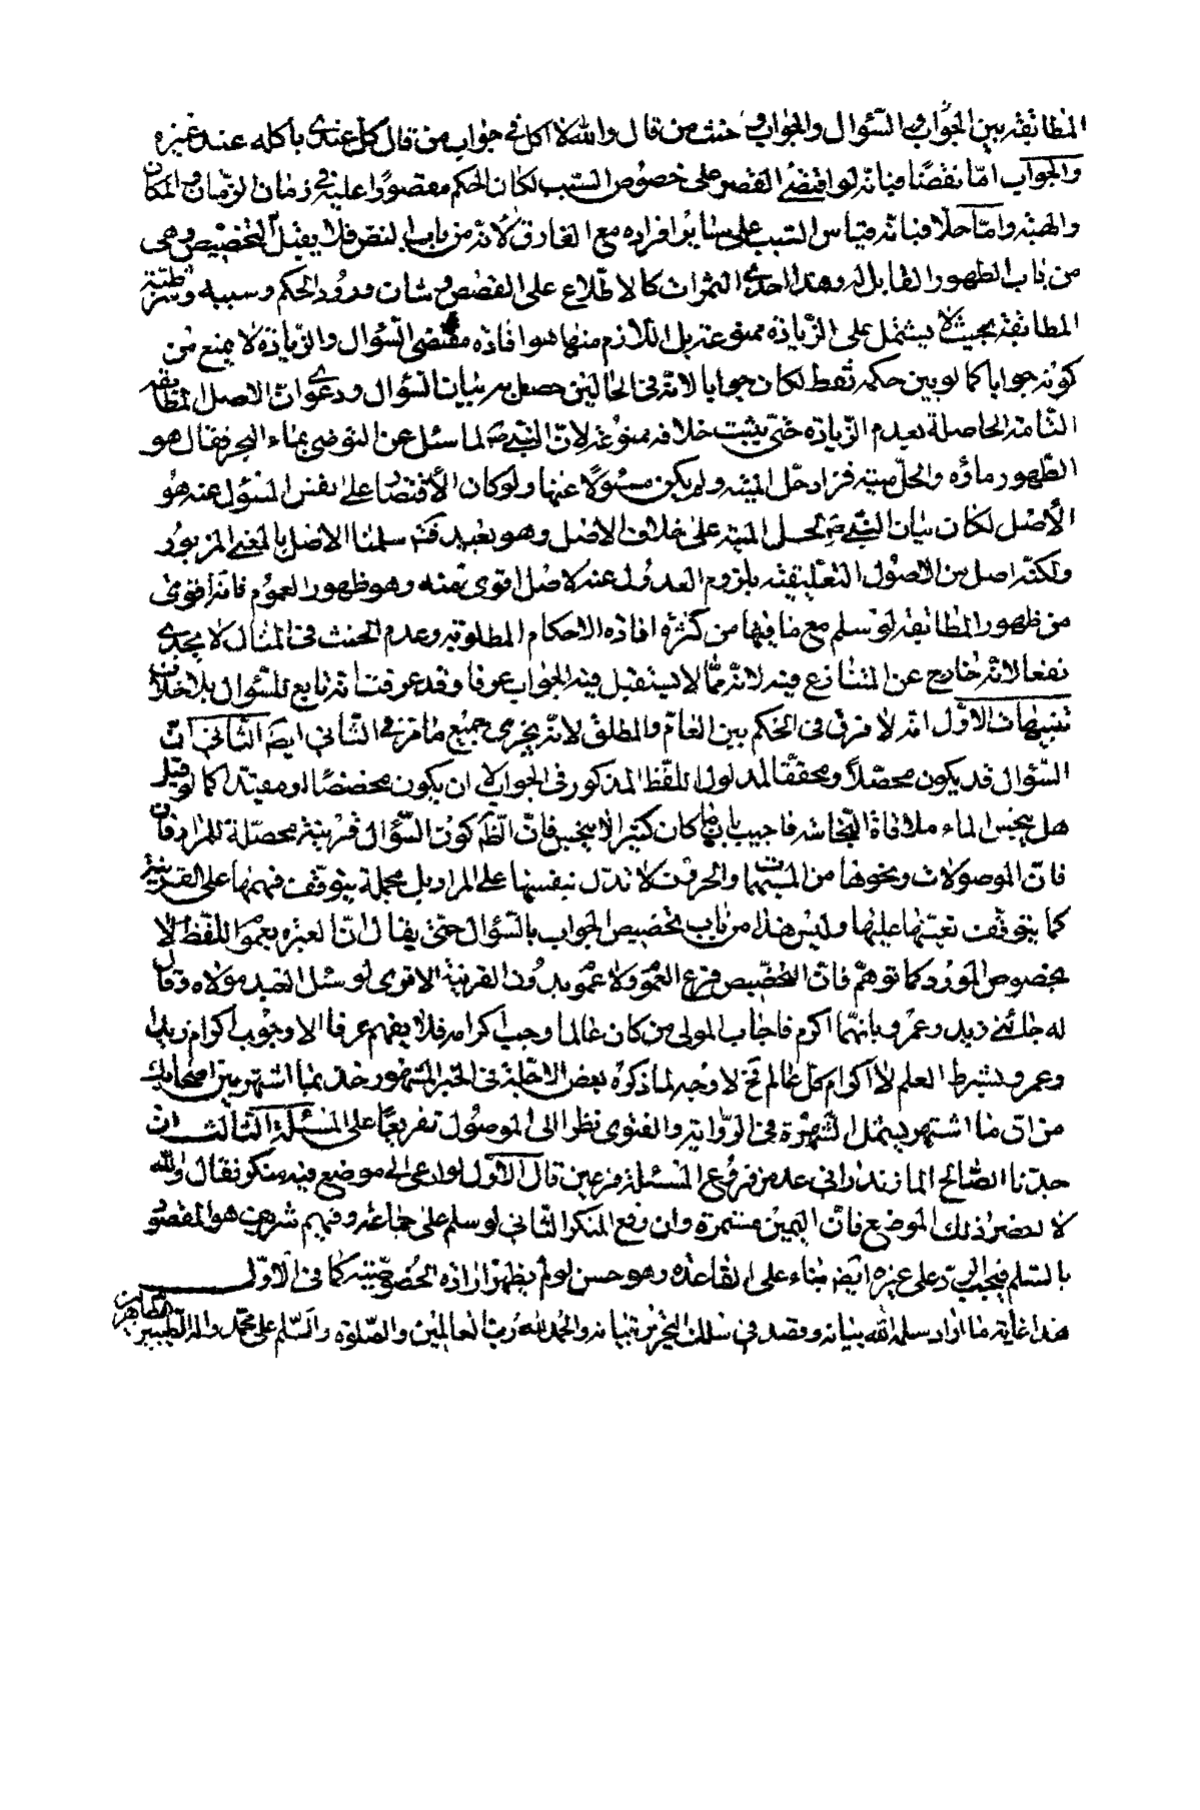 المطابقة بين الجواب والسّؤال والجواب حنث من قال والله لا اكل في جواب من قال كل عندي بأكله عند غيره
والجواب امّا نقضًا فبانّه لو اقتضى القصر على خصوص السّبب لكان الحكم مقصورًا عليه في زمان الزمان والمكان
والهيئة وامّا حلّا فبانّه قياس السّبب على سائر افراده مع الفارق لانّه من باب النصّ فلا يقبل التخصيص وهى
من باب الظهور القابل له وهذا احدى الثمرات كالاطلاع على القصص في شان ورود الحكم وسببه وشرطيّة
المطابقة بحيث لا يشتمل على الزّيادة ممنوعة بل اللّازم منها هو افادة مقتضى السّؤال والزّيادة لا يمنع من
كونه جوابا كما لو بين حكمه فقط لكان جوابا لانّه في الحالين حصل به بيان السّؤال ودعوى انّ الاصل المطابقة
التّامّة الحاصلة بعدم الزّيادة حتّى يثبت خلافه ممنوعة لانّ النّبيّ ص لما سئل عن التوضى بماء البحر فقال هو
الطّهور ماؤه والحلّ ميتته فزاد حلّ الميتة ولم يكن مسئولًا عنها ولو كان الاقتصار على نفس المسئول عنه هو
الأصل لكان بيان النّبيّ ص لحلّ الميتة على خلاف الاصل وهو بعيد سلمنا الاصل بالمعنى المزبور
ولكنّه اصل من الاصول التعليقيّة يلزم العدول عنه لاصل اقوى منه وهو ظهور العموم فانّه اقوى
من ظهور المطابقة لو سلم مع ما فيها من كثرة افادة الاحكام المطلوبة وعدم الحنث في المثال لا يجدى
نفعا لانّه خارج عن المتنازع فيه لانّه ممّا لا يستقبل فيه الجواب عرفا وقد عرفت انّه تابع للسّؤال بلا خلاف
تنبيهات الاوّل انّه لا فرق في الحكم بين العامّ والمطلق لانّه يجرى جميع ما مرّ في الثّاني ايضا الثّاني انّ
السّؤال قد يكون محصّلًا ومحقّقا لمدلول اللّفظ المذكور في الجواب لا ان يكون مخصّصا او مقيّدا كما لو قيل
هل ينجس الماء ملاقاة النّجاسة فاجيب بانّ ما كان كثيرا لا ينجس فانّ الظّ كون السّؤال قرينة محصّلة للمراد فان
فانّ الموصولات ونحوها من المبهمات والحروف لا تدلّ بنفسها على المراد بل مجملة يتوقّف فهمها على القرينة
كما يتوقّف تعيّنها عليها وليس هذا من باب تخصيص الجواب بالسّؤال حتّى يقال انّ العبرة بعموم اللّفظ لا
بخصوص المورد كما توهّم فانّ التخصّيص فرع العموم ولا عموم بدون القرينة الا ترى لو سئل العبد مولاه وقال
له جائني زيد وعمرو بايّهما اكرم فاجاب المولى من كان عالما وجب اكرامه فلا يفهم عرفا الا وجوب اكرام زيد او
وعمرو بشرط العلم لا اكرام كلّ عالم فح لا وجه لما ذكره بعض الاجلّة في الخبر المشهور خذ بما اشتهر بين اصحابك
من انّ ما اشتهر يشمل الشّهرة في الرّواية والفتوى نظرا الى الموصول تفريعًا على المسئلة الثالث انّ
جدّنا الصّالح المازندراني عد من فروع المسئلة فرعين قال الاوّل لو دعى الى موضع فيه منكر فقال والله
لا احضر ذلك الموضع فانّ اليمين مستمرة وان رفع المنكر الثّاني لو سلم على جماعة وفيهم شريف هو المقصود
بالسّلم فيجب الردّ على غيره ايضا بناء على القاعدة وهو حسن لو لم يظهر ارادة الخصوصيّة كما في الاوّل
هذا غاية ما اراد سلمه الله بيانه وقصد في سلك التحرير تبيانه والحمد لله ربّ العالمين والصّلوة والسّلم على محمّد واله الطّيبين الطّاهرين